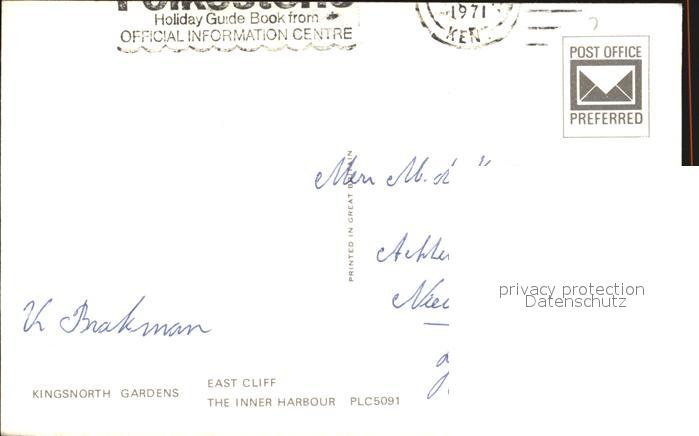 Folkestone
Holiday Guide Book from
OFFICIAL INFORMATION CENTRE
1971
KENT
POST OFFICE
PREFERRED
PRINTED IN GREAT BRITAIN
M.
privacy protection
Datenschutz
V. Brakman
KINGSNORTH GARDENS
EAST CLIFF
THE INNER HARBOUR PLC5091